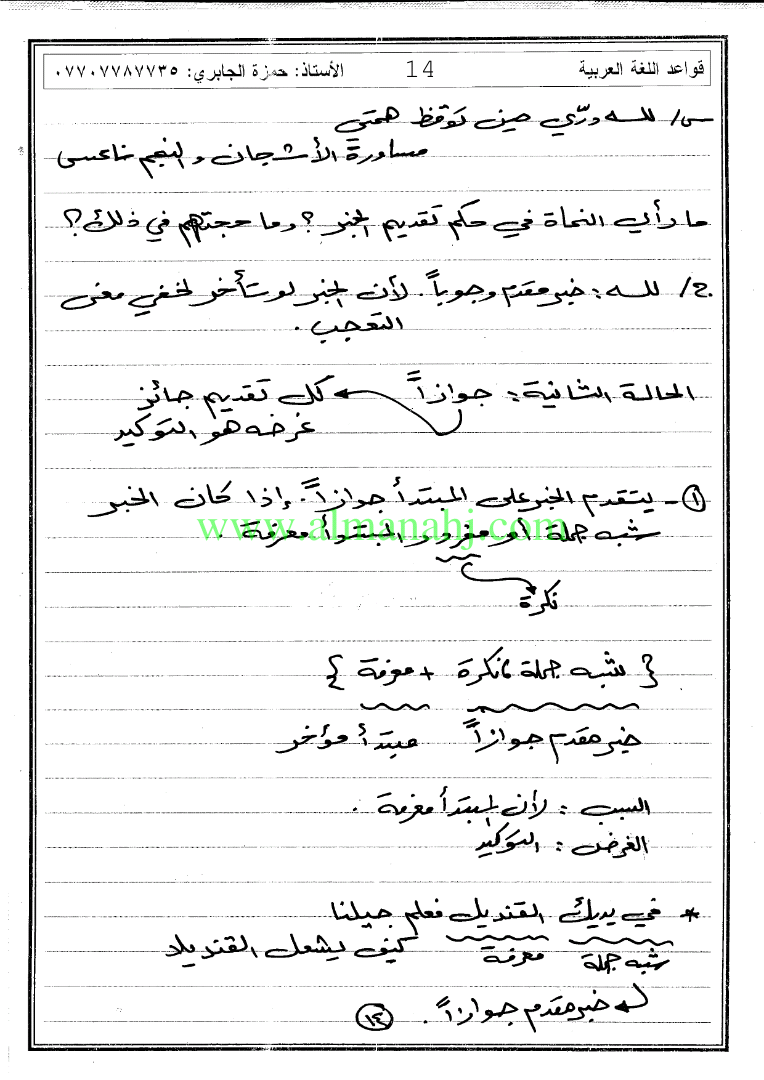 قواعد اللغة العربية 14 الأستاذ: حمزة الجابري: ٠٧٧٠٧٧٨٧٧٣٥
س/ لله درّي حين توقظ همتي
مساورة الأشجان والنجم ناعس
ما رأي النحاة في حكم تقديم الخبر؟ وما حجتهم في ذلك؟
ج/ لله: خبر مقدم وجوباً. لأن الخبر لو تأخر لخفي معنى
التعجب.
الحالة الثانية: جوازاً كل تقديم جائز
غرضه هو التوكيد
١- يتقدم الخبر على المبتدأ جوازاً. إذا كان الخبر
شبه جملة أو مفرد و المبتدأ معرفة.
www.almanahj.com
نكرة
{ شبه جملة / نكرة + معرفة }
خبر مقدم جوازاً مبتدأ مؤخر
السبب: لأن المبتدأ معرفة.
الغرض: التوكيد
* في يديك القنديل فعلم جيلنا
شبه جملة معرفة كيف يشعل القنديلا
خبر مقدم جوازاً.
١٤